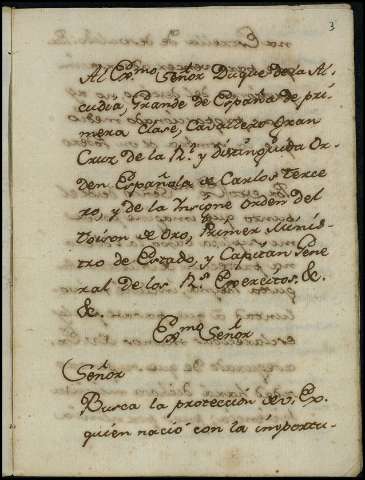 3
Al Ex.mo Señor Duque de la Al
cudia, Grande de España de pri-
mera Clase, Cavallero Gran
Cruz de la R.l y distinguida Or-
den Española de Carlos Terce
ro, y de la Insigne Orden del
Toison de Oro, Primer Minis-
tro de Estado, y Capitan Gene
ral de los R.s Exercitos. &.
&.
Ex.mo Señor
Señor
Busca la protección de V. Ex.
quien nació con la importu-